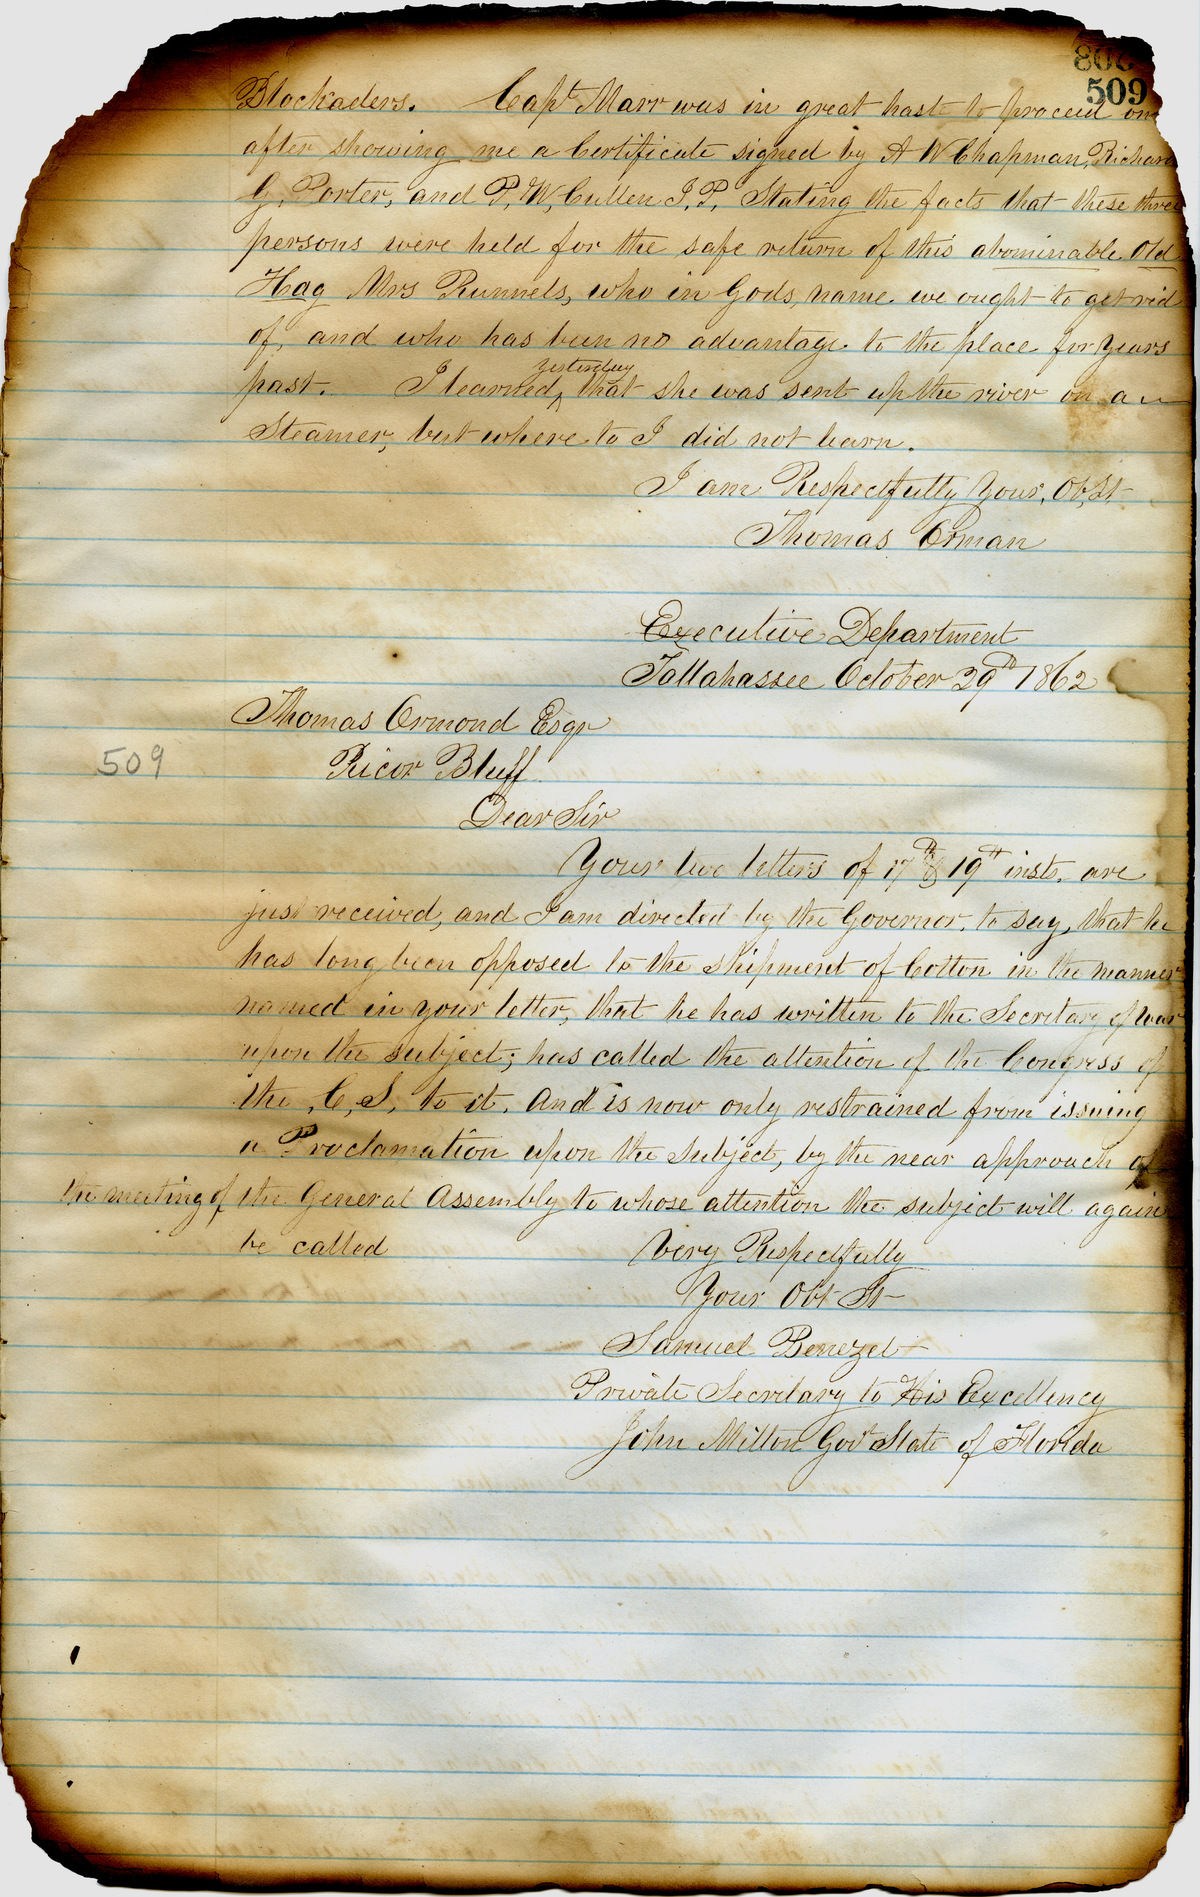 508
509
Blockaders. Capt Marr was in great haste to proceed on
after showing me a Certificate signed by A W Chapman, Richard
G, Porter, and P, W, Cullen J, P, Stating the facts that these three
persons were held for the safe return of this abominable Old
Hag Mrs Runnels, who in Gods, name we ought to get rid
of, and who has been no advantage to the place for years
past. I learned, yesterday that she was sent up the river on a
Steamer, but where to I did not learn.
I am Respectfully Your, Ob, St
Thomas Orman
Executive Department
Tallahassee October 29th 1862
Thomas Ormond Esqr
509
Ricor Bluff
Dear Sir
Your two letters of 17th & 19th insts. are
just received, and I am directed by the Governor, to say, that he
has long been opposed to the shipment of Cotton in the manner
named in your letter, that he has written to the Secretary of War
upon the subject; has called the attention of the Congress of
the, C, S, to it, and is now only restrained from issuing
a Proclamation upon the subject, by the near approach of
the meeting of the General Assembly to whose attention the subject will again
be called
Very Respectfully
Your Obt St
Samuel Benezet
Private Secretary to His Excellency
John Milton Govr State of Florida